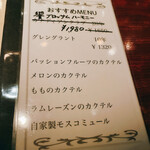 おすすめMENU
響ブロッサムハーモニー
¥1980
グレングラント 10年
¥1320
パッションフルーツのカクテル
メロンのカクテル
もものカクテル
ラムレーズンのカクテル
自家製モスコミュール